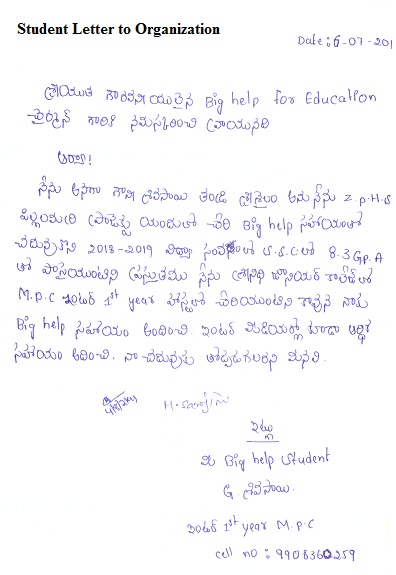 Student Letter to Organization
Date: 6-07-201
శ్రీయుత గౌరవనీయులైన Big help for Education
చైర్మన్ గారికి నమస్కరించి వ్రాయునది
ఆర్యా!
నేను అనగా శివసాయి తండ్రి శ్రీశైలం అను నేను Z.P.H.S
పిల్లలమర్రి యందులో చేరి Big help సహాయంతో
చదువుకొని 2018-2019 విద్యా సంవత్సరంలో S.S.C లో 8.3 Gp.A
తో పాసైయుంటిని ప్రస్తుతము నేను శ్రీనిధి జూనియర్ కాలేజ్ లో
M.P.C ఇంటర్ 1st year హాస్టల్లో చేరియుంటిని కావున నాకు
Big help సహాయం అందించి. ఇంటర్ మీడియట్లో కూడా ఆర్థిక
సహాయం అందించి. నా చదువుకు తోడ్పడగలరని మనవి.
ఇట్లు
మీ Big help student
G శివసాయి.
ఇంటర్ 1st year M.P.C
cell no: 9908360259